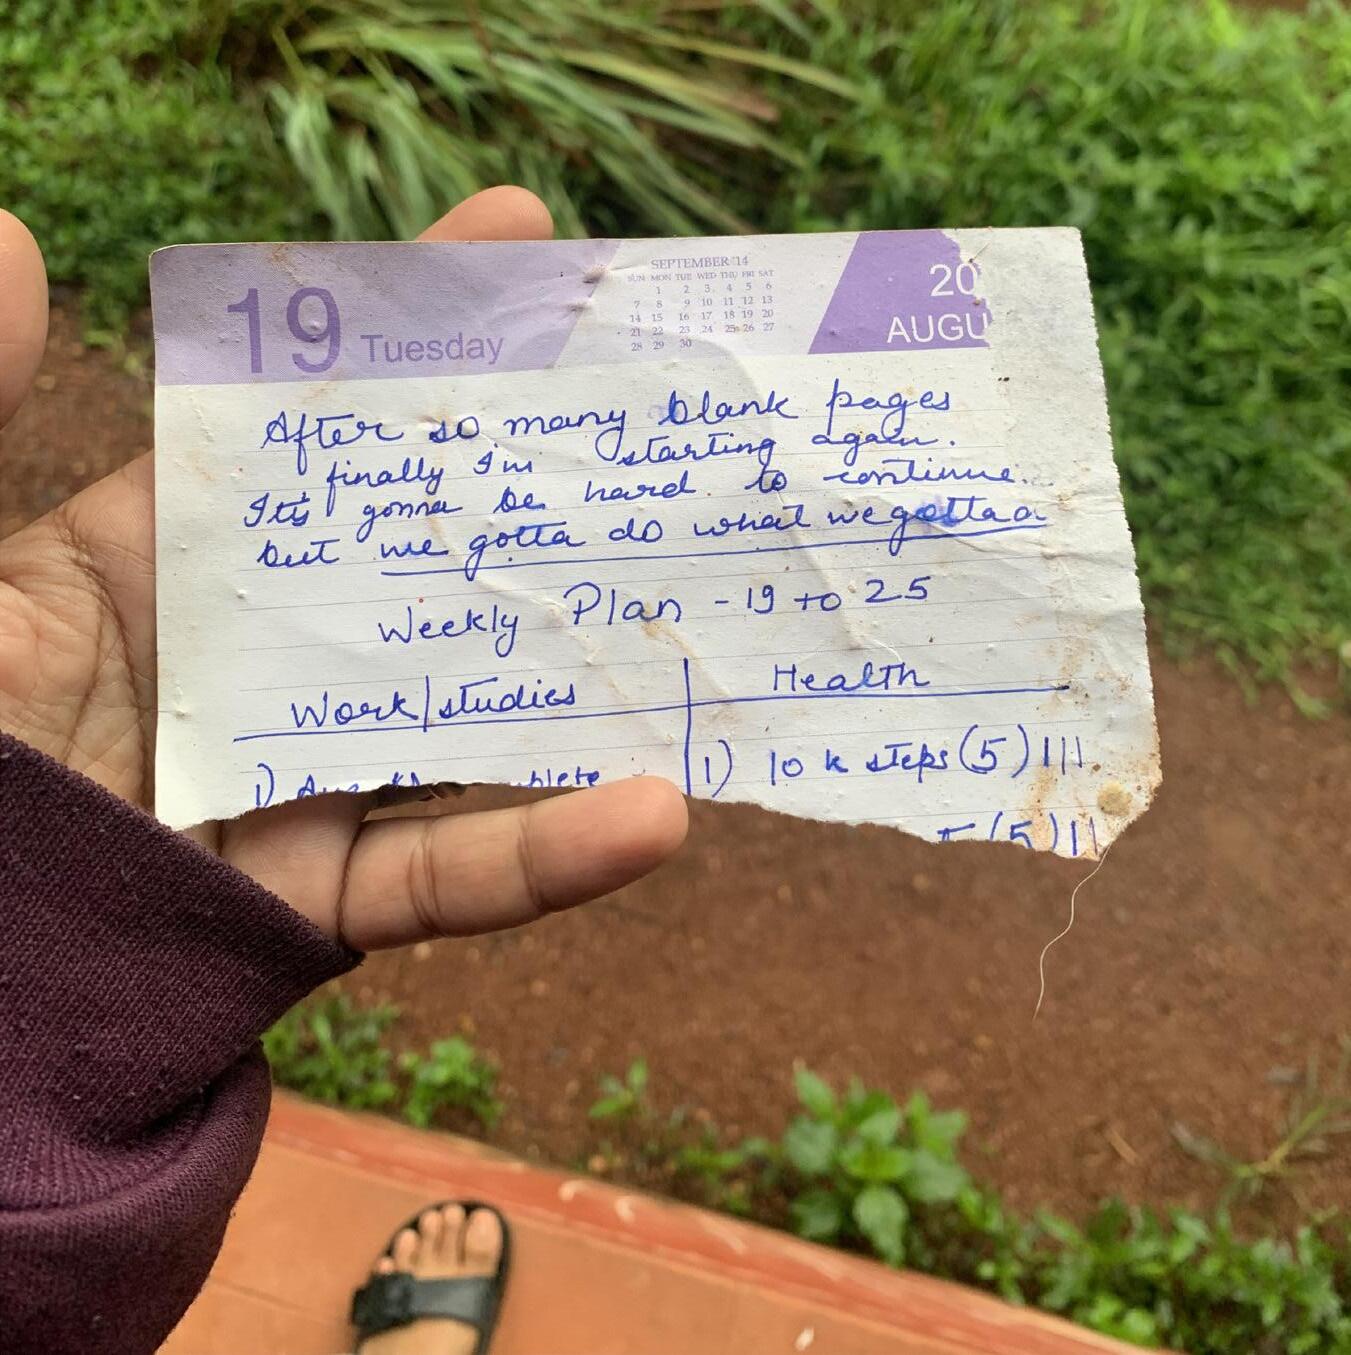 19 Tuesday
SEPTEMBER '14
SUN MON TUE WED THU FRI SAT
1 2 3 4 5 6
7 8 9 10 11 12 13
14 15 16 17 18 19 20
21 22 23 24 25 26 27
28 29 30
20
AUGU
After so many blank pages
finally I'm starting again.
It's gonna be hard to continue.
but we gotta do what we gotta
Weekly Plan - 19 to 25
Work/studies
Health
1)
1) 10 k steps (5) |||
(5) ||